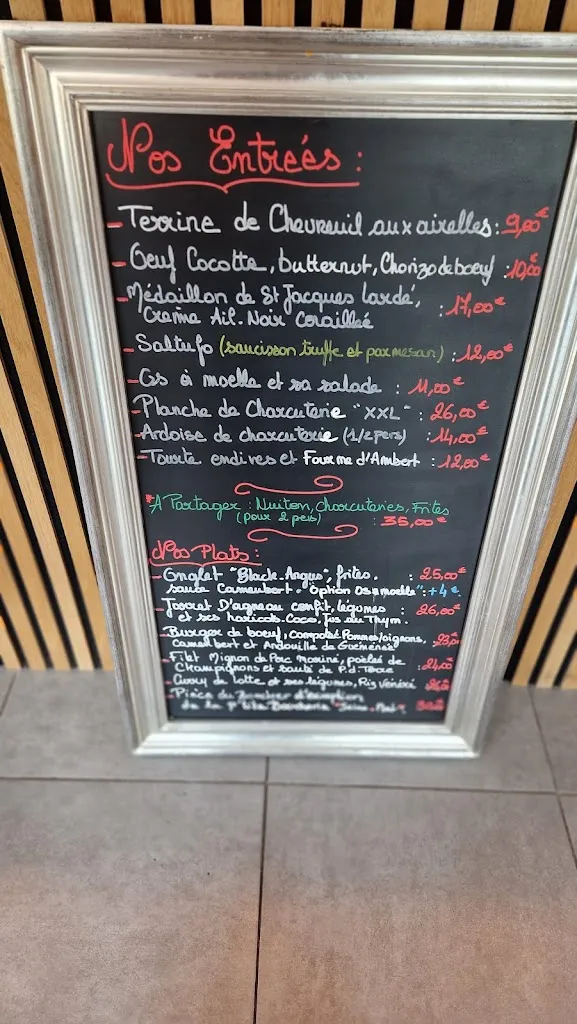 Nos Entreés :
- Terrine de Chevreuil aux airelles : 9,00€
- Oeuf Cocotte, butternut, Chorizo de boeuf : 10,00€
- Médaillon de St Jacques lardé, : 17,00€
Creme Ail. Noir Coraillée
- Saltufo (saucisson truffe et parmesan) : 12,00€
- Os à moelle et sa salade : 11,00€
- Planche de Charcuterie "XXL" : 26,00€
- Ardoise de charcuterie (1/2 pers) : 14,00€
- Tourte endives et Fourme d'Ambert : 12,00€
* A Partager : Nuiton, charcuteries, Frites
(pour 2 pers) : 35,00€
Nos Plats :
- Onglet "Black-Angus", frites. : 25,00€
sauce Camembert. "Option Os à moelle" : +4€
- Jarret D'agneau confit, légumes : 26,00€
et ses haricots. Coco, Jus au Thym.
- Burger de boeuf, compoté Pommes/oignons,
camembert et Andouille de Guémenée
- Filet Mignon de Porc mariné, poêlée de : 24,00€
Champignons et sauté de P.d. Terre
- Curry de lotte et ses légumes, Riz Vénéré
- Pièce du Boucher d'exception
de la p'tite Boucherie